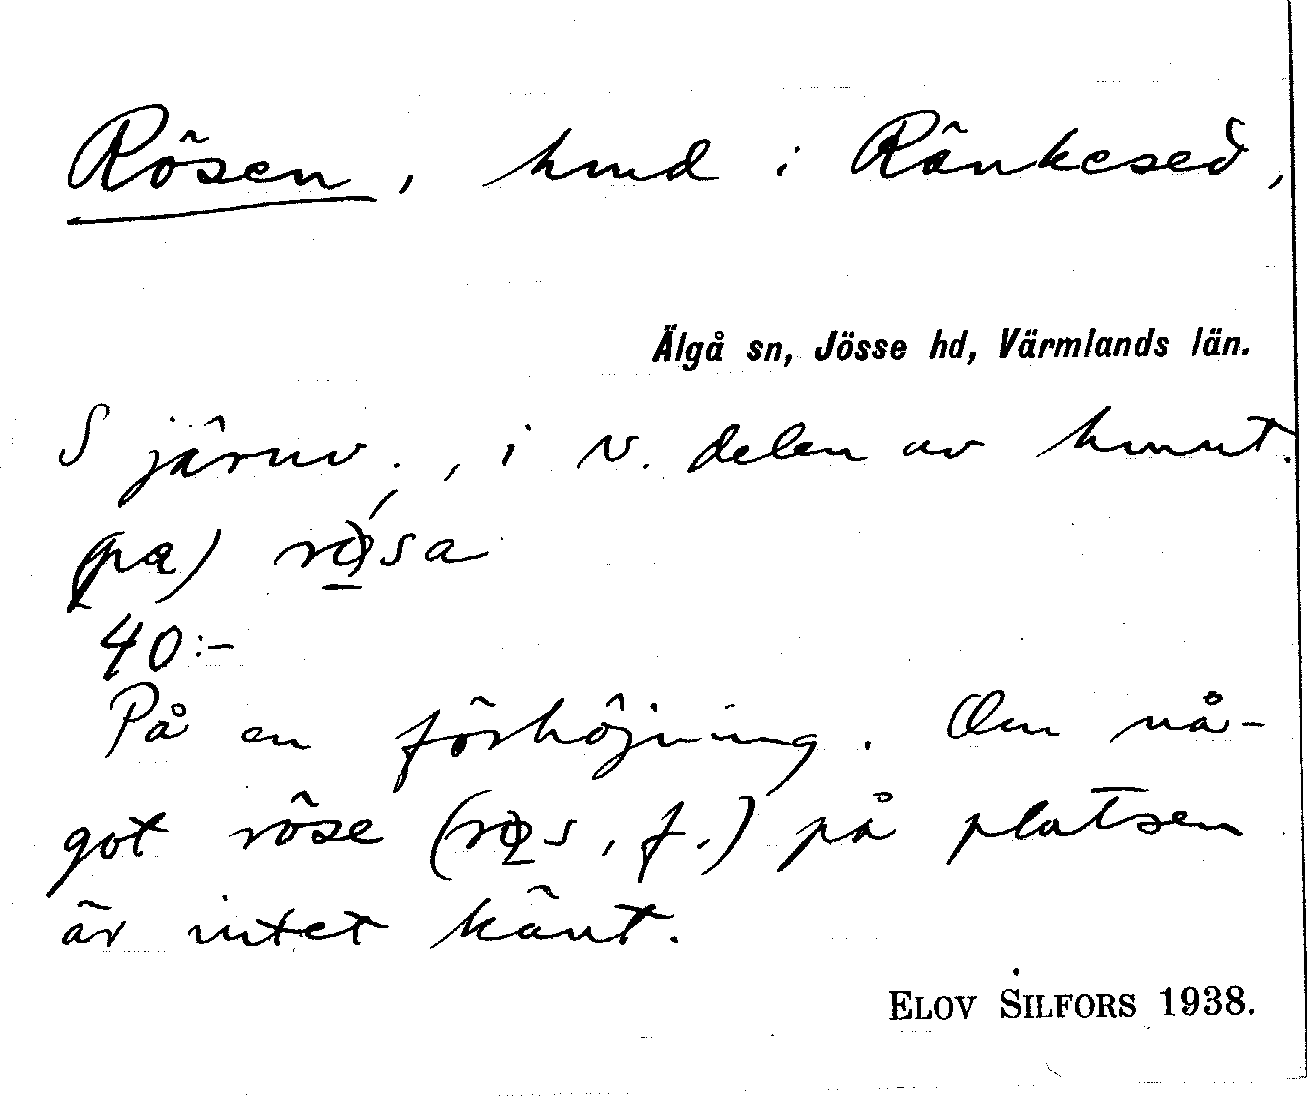 Rösen, hmd i Ränkesed,
Älgå sn, Jösse hd, Värmlands län.
S järnv., i v. delen av hmnt.
(pa) rǿ̱sa
40:-
På en förhöjning. Om nå-
got röse (rø̱s, f.) på platsen
är intet känt.
ELOV SILFORS 1938.